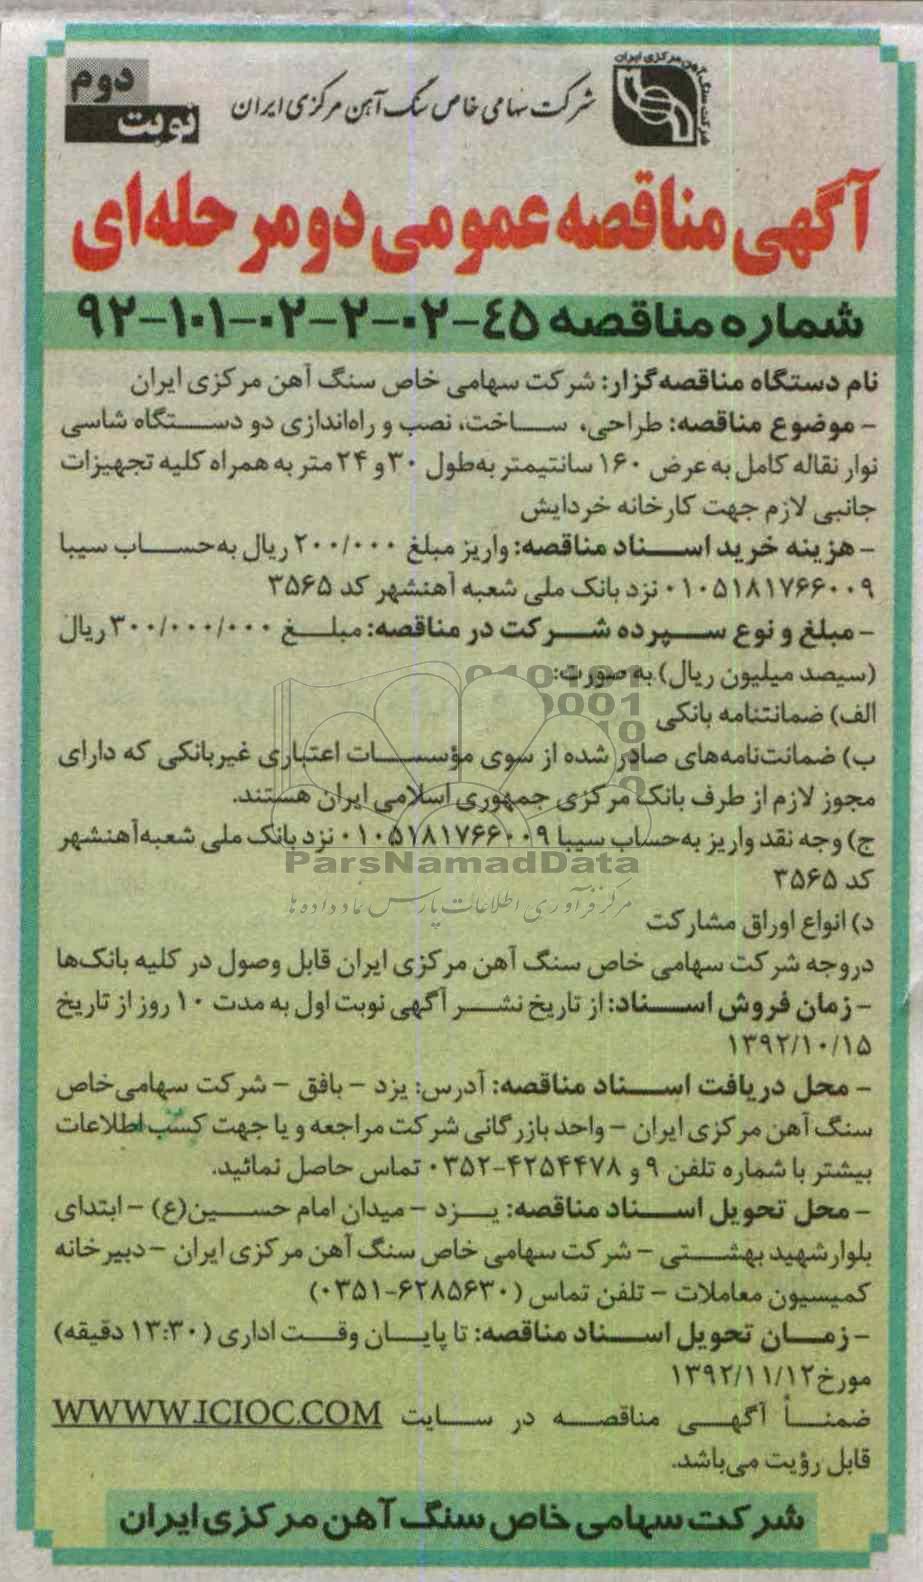 شرکت سنگ آهن مرکزی ایران
شرکت سهامی خاص سنگ آهن مرکزی ایران
نوبت دوم
آگهی مناقصه عمومی دو مرحله‌ای
شماره مناقصه ۴۵-۰۲-۲-۰۲-۱۰۱-۹۲
نام دستگاه مناقصه‌گزار: شرکت سهامی خاص سنگ آهن مرکزی ایران
- موضوع مناقصه: طراحی، ساخت، نصب و راه‌اندازی دو دستگاه شاسی
نوار نقاله کامل به عرض ۱۶۰ سانتیمتر به‌طول ۳۰ و ۲۴ متر به همراه کلیه تجهیزات
جانبی لازم جهت کارخانه خردایش
- هزینه خرید اسناد مناقصه: واریز مبلغ ۲۰۰/۰۰۰ ریال به‌حساب سیبا
۰۱۰۵۱۸۱۷۶۶۰۰۹ نزد بانک ملی شعبه آهنشهر کد ۳۵۶۵
- مبلغ و نوع سپرده شرکت در مناقصه: مبلغ ۳۰۰/۰۰۰/۰۰۰ ریال
(سیصد میلیون ریال) به صورت:
الف) ضمانتنامه بانکی
ب) ضمانت‌نامه‌های صادر شده از سوی مؤسسات اعتباری غیربانکی که دارای
مجوز لازم از طرف بانک مرکزی جمهوری اسلامی ایران هستند.
ج) وجه نقد واریز به‌حساب سیبا ۰۱۰۵۱۸۱۷۶۶۰۰۹ نزد بانک ملی شعبه آهنشهر
ParsNamadData
کد ۳۵۶۵
مرکز فرآوری اطلاعات پارس نماد داده ها
د) انواع اوراق مشارکت
دروجه شرکت سهامی خاص سنگ آهن مرکزی ایران قابل وصول در کلیه بانک‌ها
- زمان فروش اسناد: از تاریخ نشر آگهی نوبت اول به مدت ۱۰ روز از تاریخ
۱۳۹۲/۱۰/۱۵
- محل دریافت اسناد مناقصه: آدرس: یزد - بافق - شرکت سهامی‌خاص
سنگ آهن مرکزی ایران - واحد بازرگانی شرکت مراجعه و یا جهت کسب اطلاعات
بیشتر با شماره تلفن ۹ و ۴۲۵۴۴۷۸-۰۳۵۲ تماس حاصل نمائید.
- محل تحویل اسناد مناقصه: یزد - میدان امام حسین(ع) - ابتدای
بلوارشهید بهشتی - شرکت سهامی خاص سنگ آهن مرکزی ایران - دبیرخانه
کمیسیون معاملات - تلفن تماس (۶۲۸۵۶۳۰-۰۳۵۱)
- زمان تحویل اسناد مناقصه: تا پایان وقت اداری (۱۳:۳۰ دقیقه)
مورخ ۱۳۹۲/۱۱/۱۲
ضمناً آگهی مناقصه در سایت WWWW.ICIOC.COM
قابل رؤیت می‌باشد.
شرکت سهامی خاص سنگ آهن مرکزی ایران